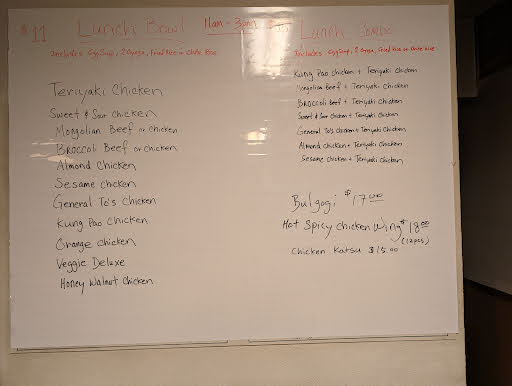 $11 Lunch Bowl 11am - 3pm
Includes Egg Soup, 2 Gyoza, Fried Rice or White Rice
Teriyaki Chicken
Sweet & Sour Chicken
Mongolian Beef or Chicken
Broccoli Beef or Chicken
Almond Chicken
Sesame Chicken
General To's Chicken
Kung Pao Chicken
Orange Chicken
Veggie Deluxe
Honey Walnut Chicken
Lunch Combo
Includes Egg Soup, 2 Gyoza, Fried Rice or White Rice
Kung Pao Chicken + Teriyaki Chicken
Mongolian Beef + Teriyaki Chicken
Broccoli Beef + Teriyaki Chicken
Sweet & Sour Chicken + Teriyaki Chicken
General To's Chicken + Teriyaki Chicken
Almond Chicken + Teriyaki Chicken
Sesame Chicken + Teriyaki Chicken
Bulgogi $17.00
Hot Spicy Chicken Wing $18.00
(12pcs)
Chicken Katsu $15.00